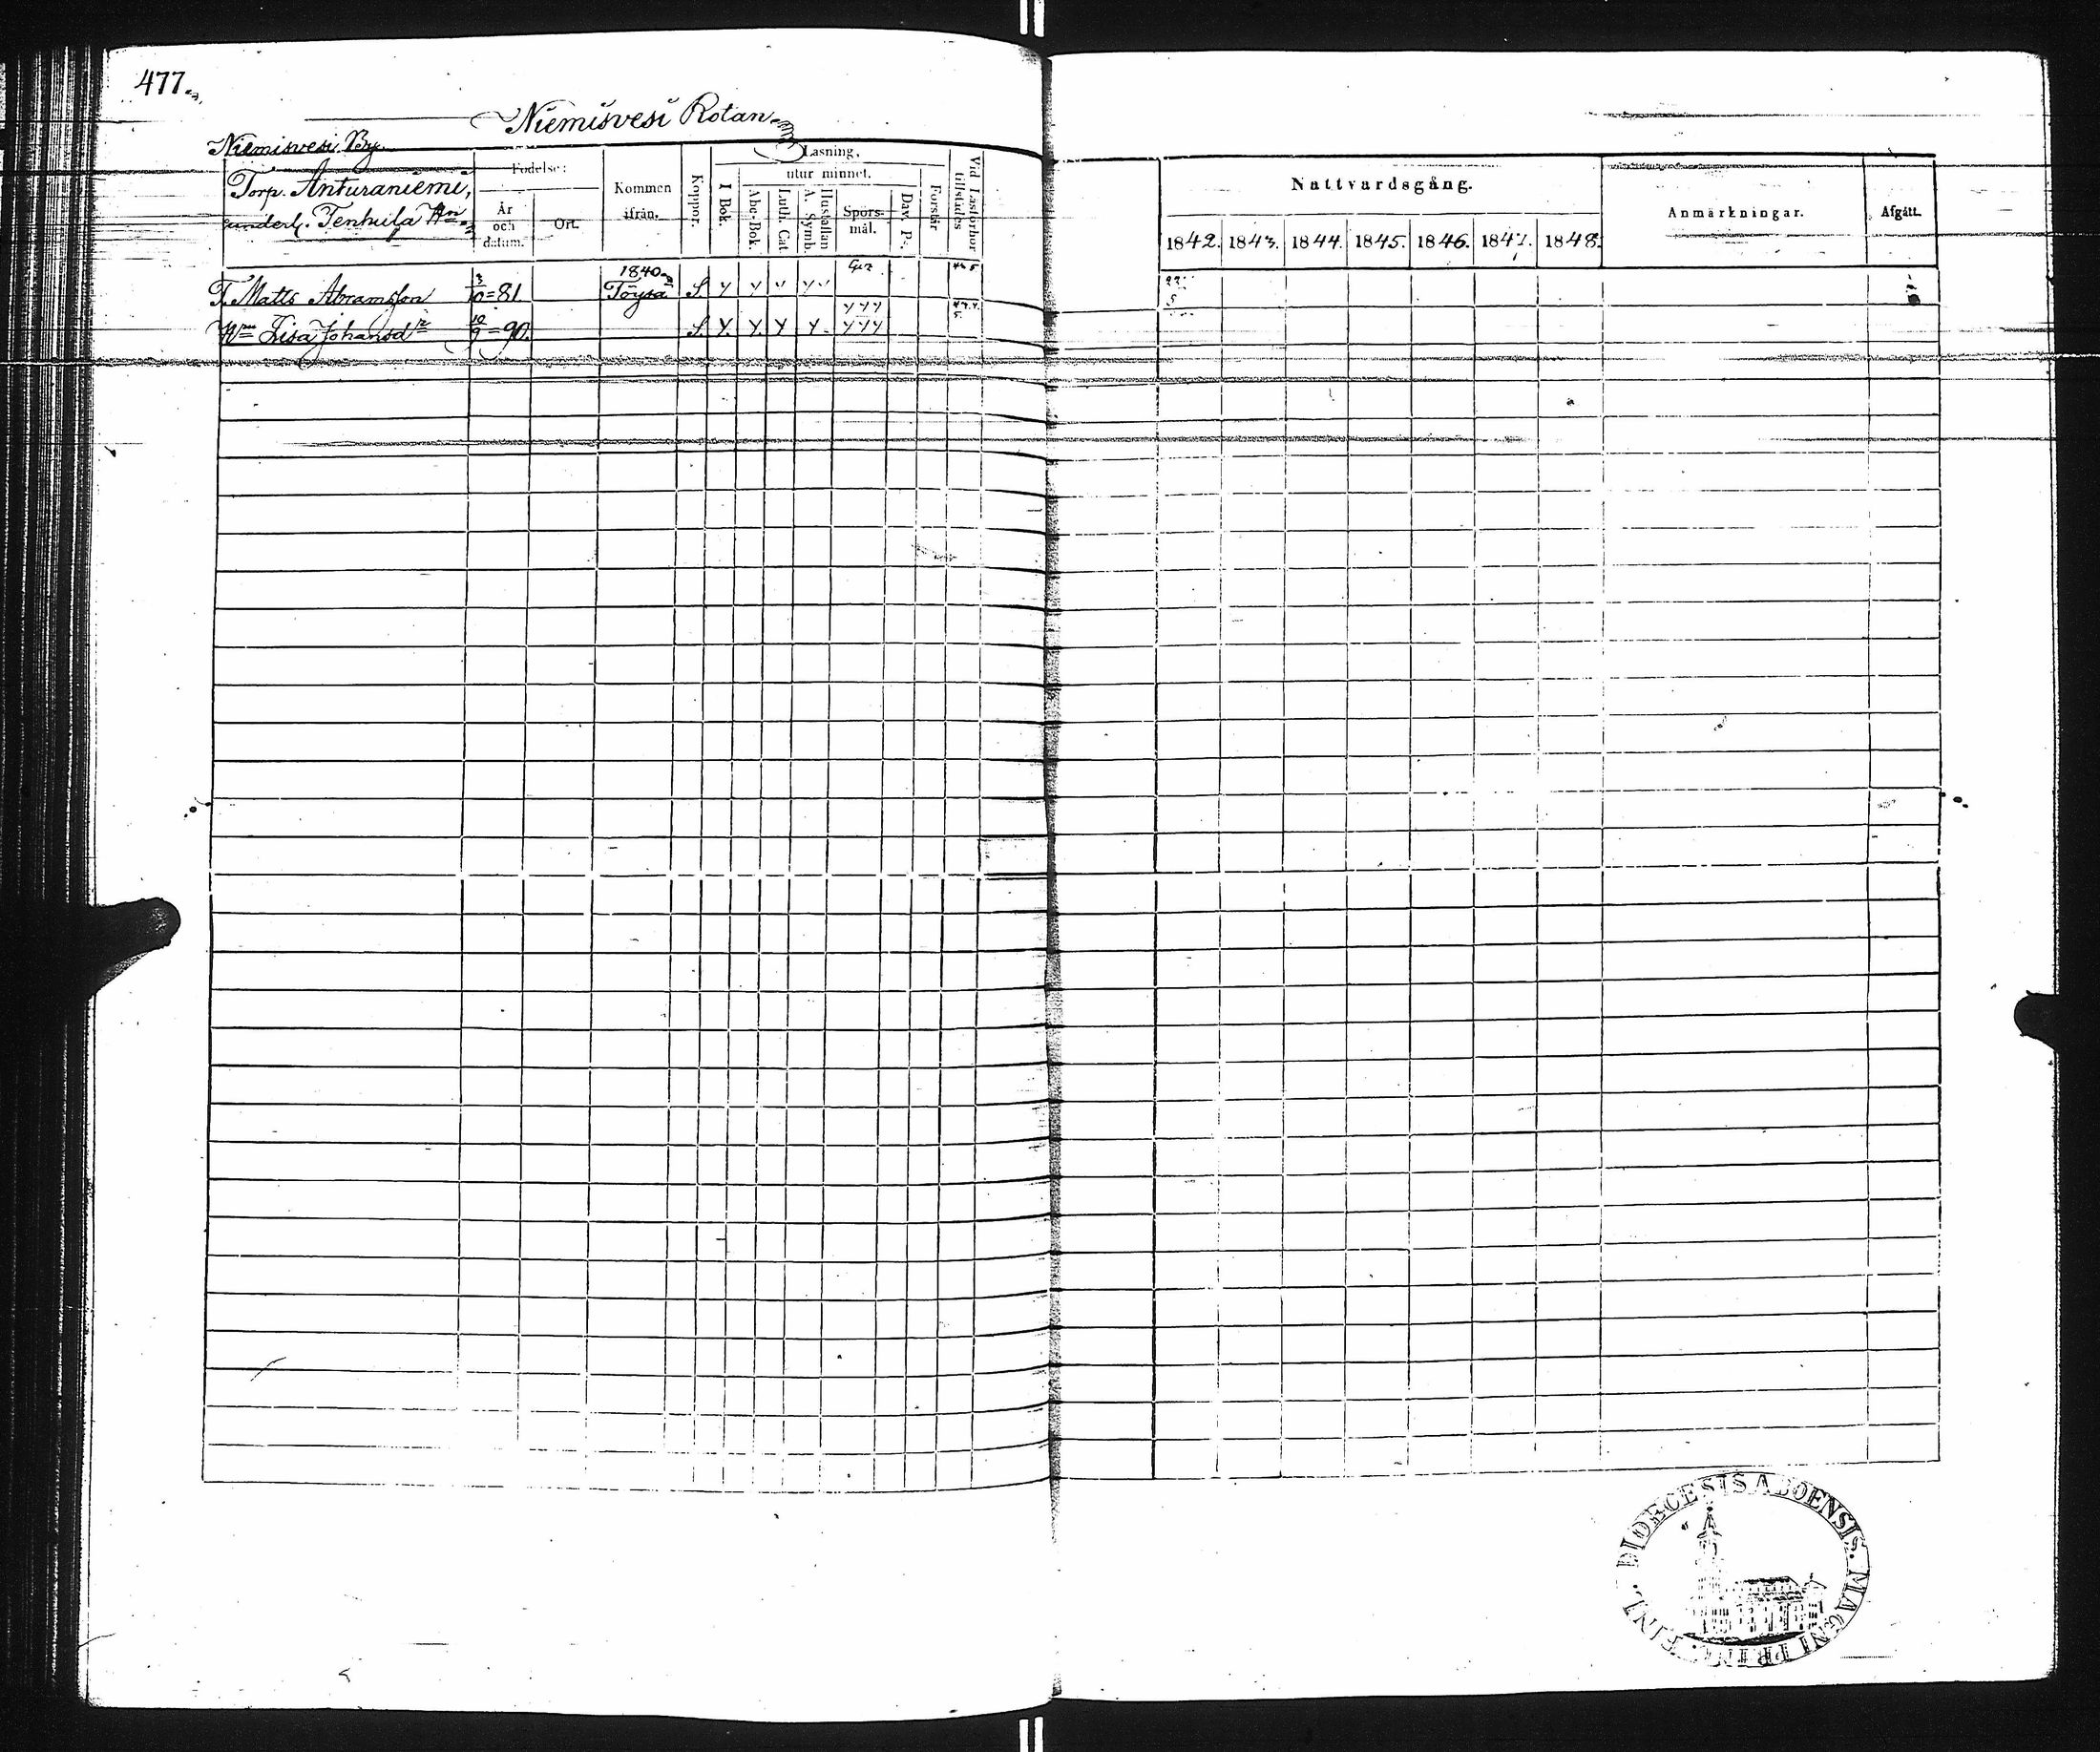 477.
Niemisvesi Rotan
Niemisvesi By.
Torp. Anturaniemi,
underl. Tenhula
Födelse:
År och datum.
Ort.
Kommen ifrån.
Koppor.
Läsning,
utur minnet.
I Bok.
Abc-Bok.
Luth. Cat.
Hustaflan A. Symb.
Spörs-mål.
Dav. Ps.
Förstår
Vid Läsförhör tillstädes
Nattvardsgång.
1842. 1843. 1844. 1845. 1846. 1847. 1848.
Anmärkningar.
Afgått.
T. Matts Abramsson 3/10=81. 1840 Töysä S. Y Y
Hn Lisa Johansdr 10/9=90. S. Y. Y. Y Y. YYY
DIOECESIS ABOENSIS. MAGNI PRINC. FINL.